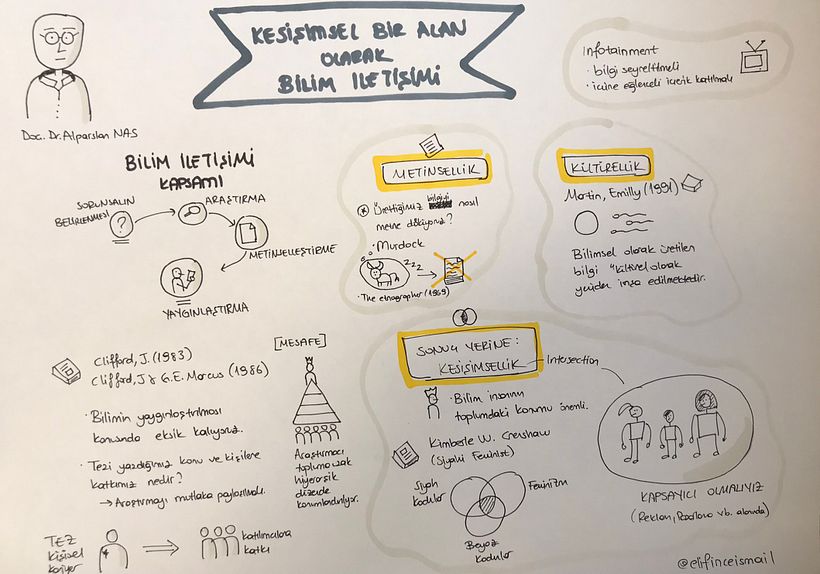 KESİŞİMSEL BİR ALAN
OLARAK
BİLİM İLETİŞİMİ
Doc. Dr. Alparslan NAS
Infotainment
· bilgi seyreltmeli
· içine eğlenceli içerik katılmalı
BİLİM İLETİŞİMİ
KAPSAMI
SORUNSALIN
BELİRLENMESİ
?
ARAŞTIRMA
METİNSELLEŞTİRME
YAYGINLAŞTIRMA
METİNSELLİK
Ürettiğimiz bilgiyi nasıl
metne döküyoruz?
· Murdock
zzz
· The etnographer (1969)
KÜLTÜRELLİK
Martin, Emilly (1991)
Bilimsel olarak üretilen
bilgi "kültürel olarak
yeniden inşa edilmektedir.
Clifford, J. (1983)
Clifford, J & G.E. Marcus (1986)
· Bilimin yaygınlaştırılması
konusunda eksik kalıyoruz.
· Tezi yazdığımız konu ve kişilere
katkımız nedir?
→ Araştırmayı mutlaka paylaşmalı.
[MESAFE]
Araştırmacı
topluma uzak
hiyerarşik
düzende
konumlandırılıyor.
TEZ
kişisel
kariyer
katılımcılara
katkı
SONUÇ YERİNE:
KESİŞİMSELLİK
Intersection
· Bilim insanının
toplumdaki konumu önemli.
Kimberle W. Crenshaw
(Siyahi Feminist)
Siyah
kadınlar
Feminizm
Beyaz
Kadınlar
KAPSAYICI OLMALIYIZ
@elifinceismail